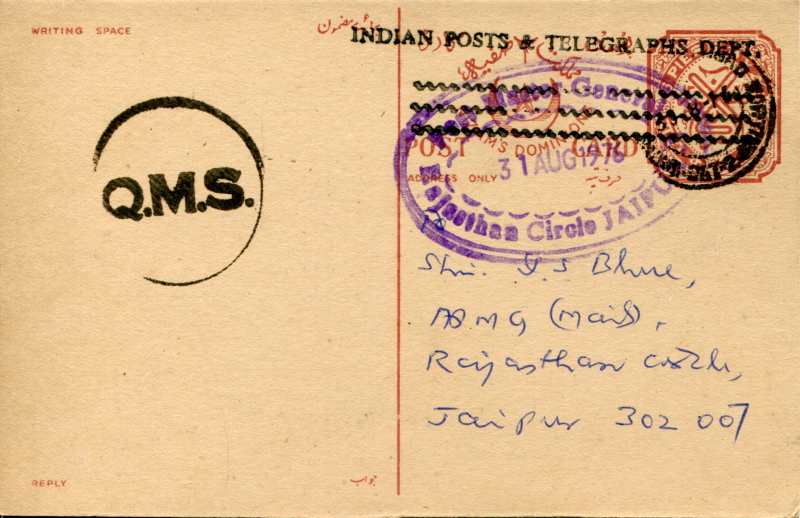 WRITING SPACE
INDIAN POSTS & TELEGRAPHS DEPT.
Q.M.S.
Post Master General
POST CARD
31 AUG 1976
ADDRESS ONLY
Rajasthan Circle JAIPUR
Shri.
APMG (Mails),
Rajasthan Circle,
Jaipur 302 007
REPLY
جواب